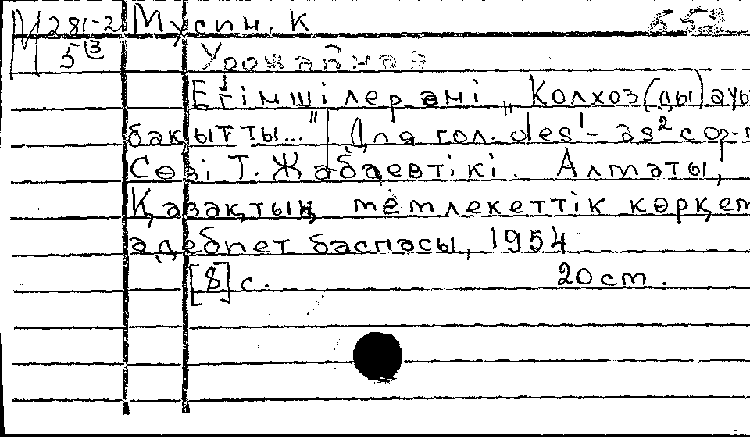 М 281-2 Мусин, К 553
5
Урожайная
Егіншілер әні „Колхоз(ды) ауы
бақытты..." Для гол. des¹ - as² сор-
Сөзі Т. Жабаевтікі. Алматы,
Қазақтың мемлекеттік көркем
әдебиет баспасы, 1954
[8] с. 20 cm.